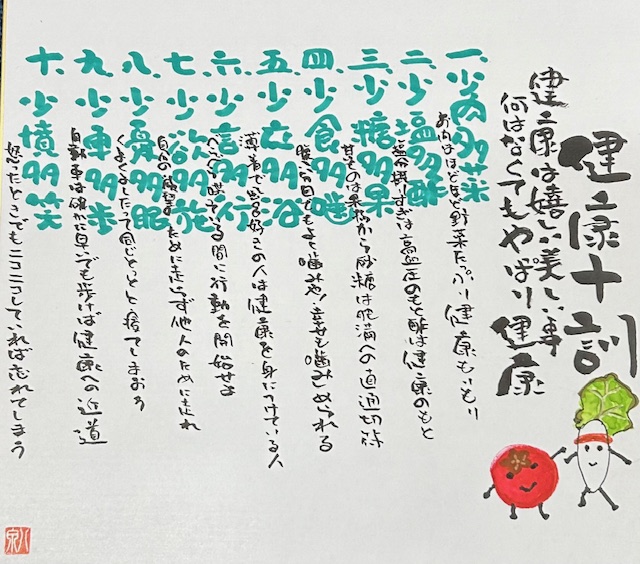 健康十訓
健康は嬉しい美しい事
何はなくてもやはり健康
一、少肉多菜
お肉はほどほど野菜たっぷり健康もりもり
二、少塩多酢
塩分摂りすぎは高血圧のもと酢は健康のもと
三、少糖多果
甘さは果物から砂糖は肥満への直通切符
四、少食多噛
腹八分目でもよく噛みゃ幸せも噛みしめられる
五、少衣多浴
薄着で風呂好きの人は健康を身につけている人
六、少言多行
べらべら喋る間に行動を開始せよ
七、少欲多施
自分の欲望のために走らず他人のために走れ
八、少憂多眠
くよくよしたって同じとっとと寝てしまおう
九、少車多歩
自動車は確かに早いでも歩けば健康への近道
十、少憤多笑
怒ったとこでもニコニコしていれば忘れてしまう